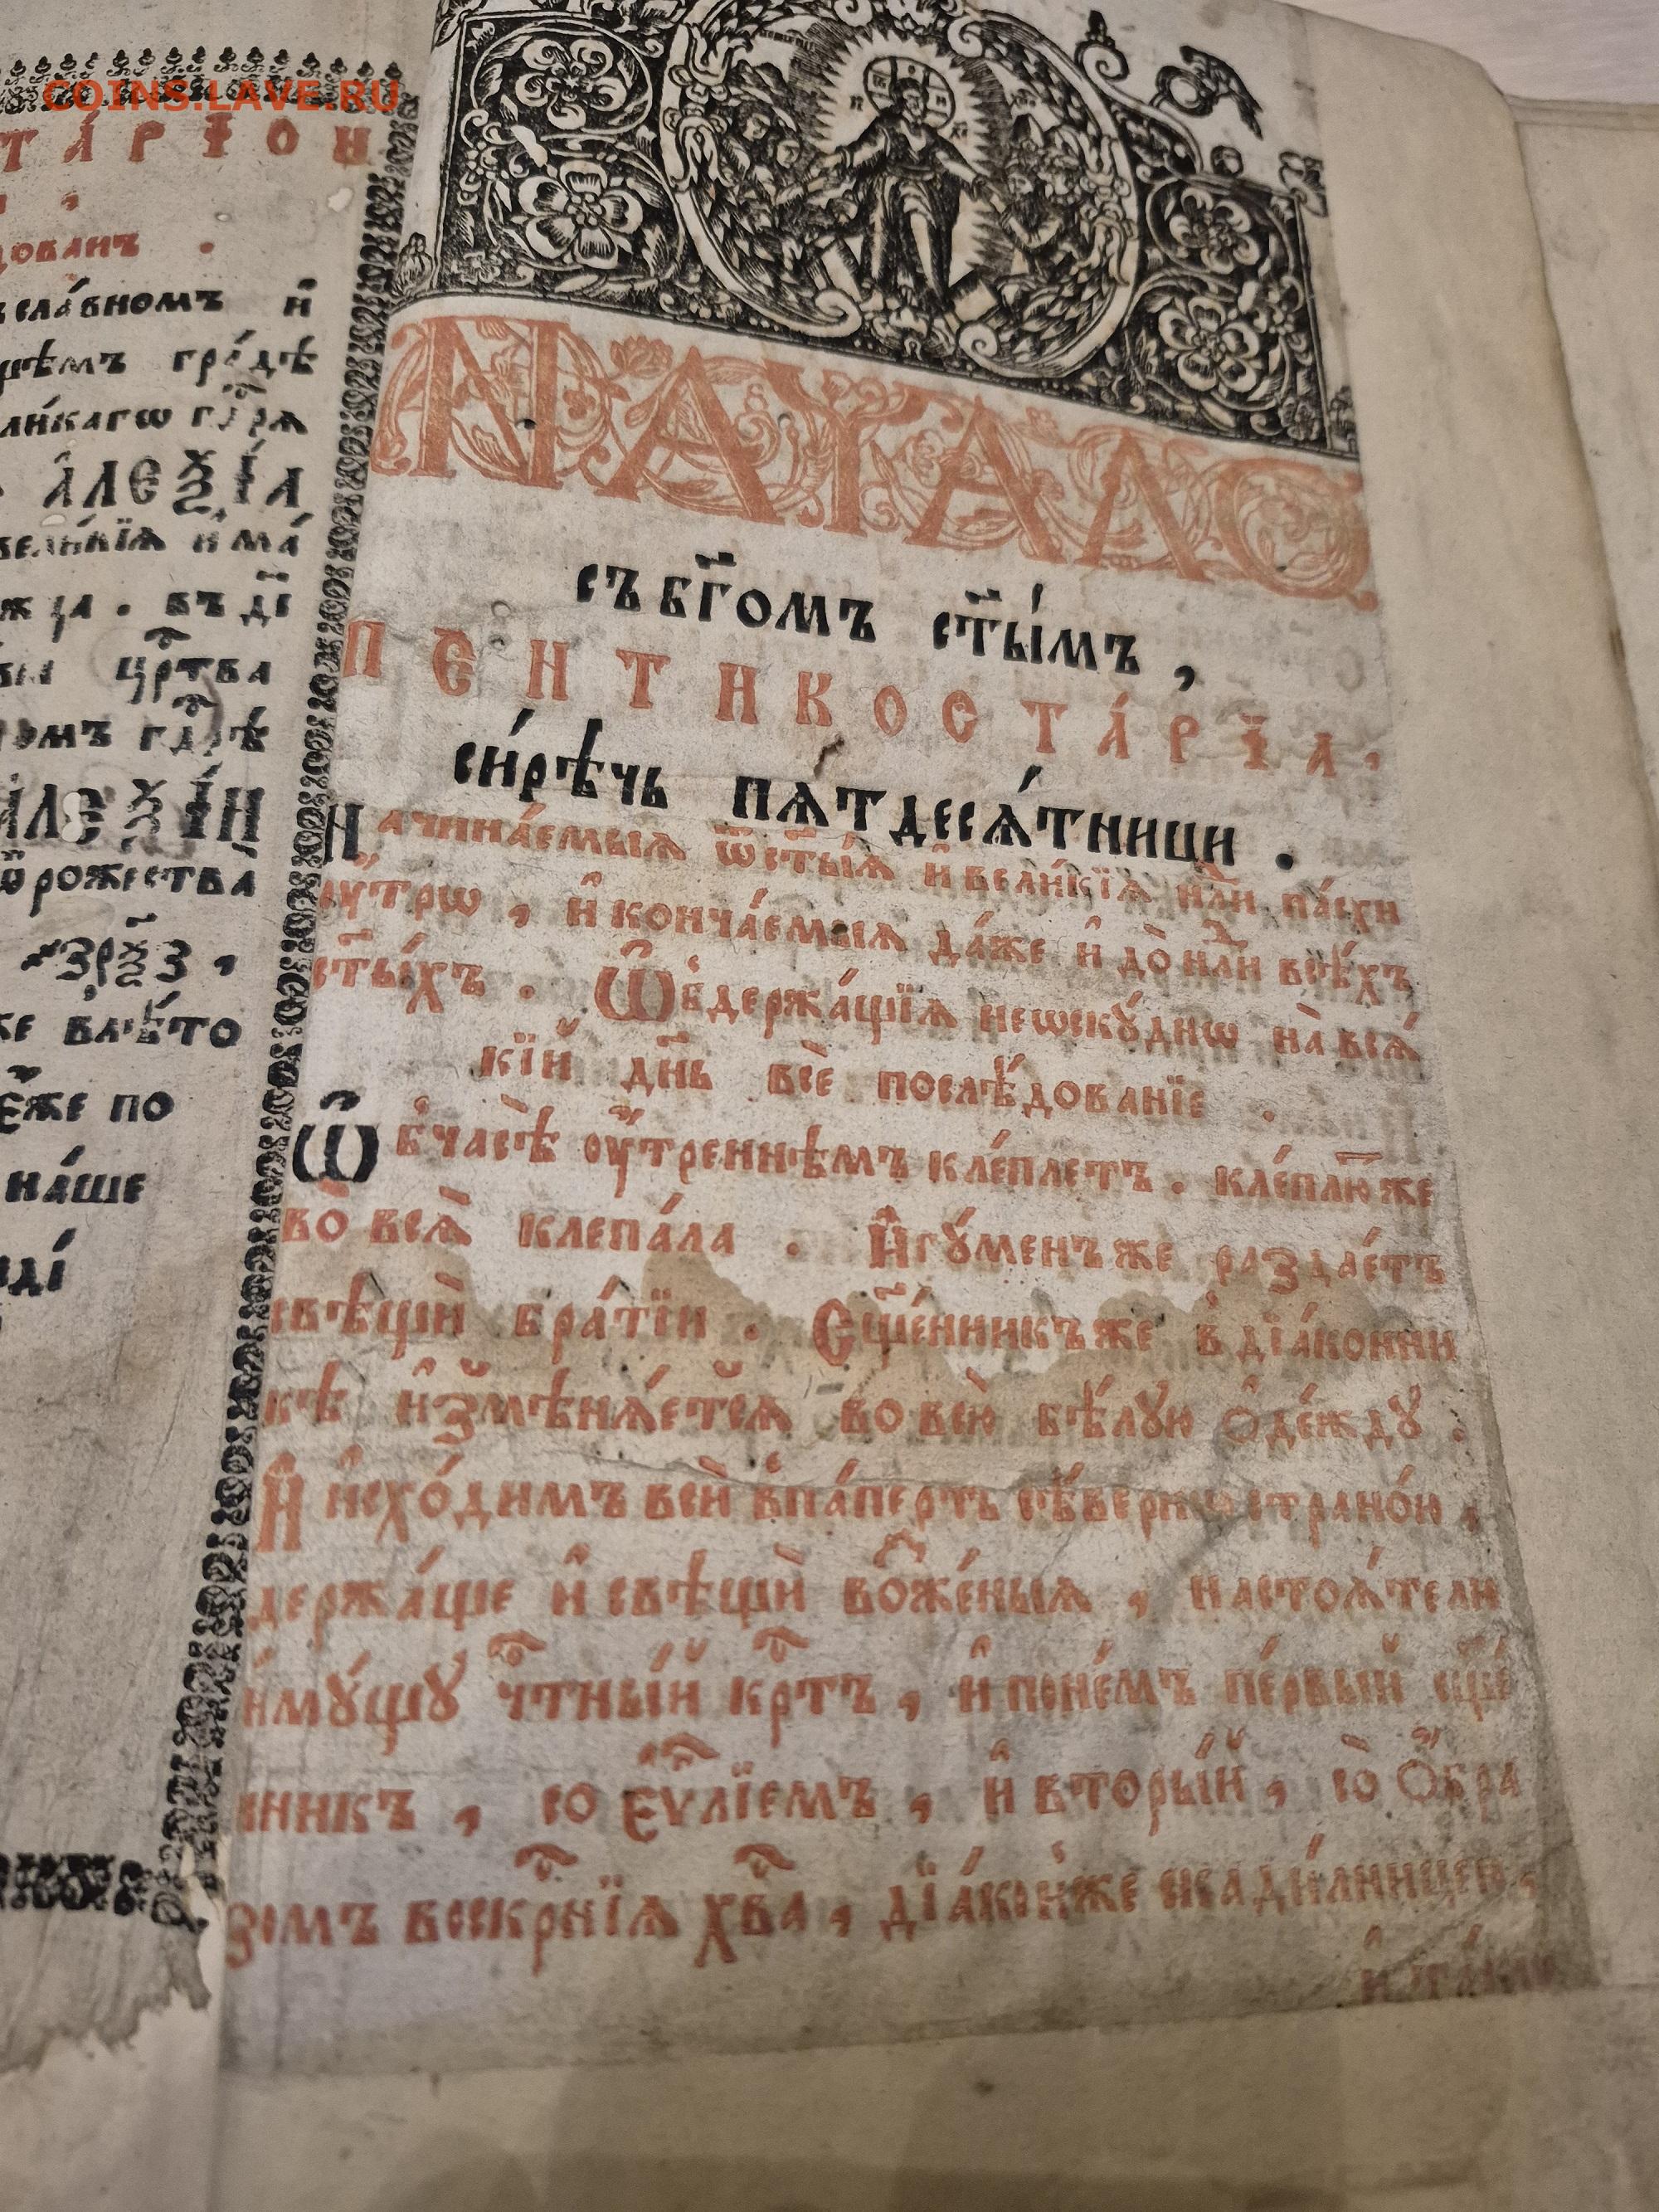 COINS.LAVE.RU
ТА́РІОН
дованъ .
сла́вномъ и҆
гра́дѣ
А҆ЛЕѮІ́А
вели́кїѧ и҆ ма́
въ дг҃ і
цр҃тва
А҆ЛЕѮІ́И
ѿ рожества̀
҂зрѯ҃з ,
же влѣ́то
є҆́же по
на́ше
НАЧАЛО
съ бг҃омъ ст҃ы́мъ ,
ПЕНТИКОСТА́РЇА .
си́рѣчь пѧтдесѧ́тници .
Начина́емыѧ ѿ ст҃ы́ѧ и҆ вели́кїѧ нл҃и па́схи
ꙋ҆́трѡ , и҆ конча́емыѧ да́же и҆ до̀ нл҃и всѣ́хъ
ст҃ы́хъ . Ѿ в̾держа́щїѧ неѡскꙋ́днѡ на̀ всѧ́
кїй дн҃ь всѐ послѣ́дованїе .
Ѿ в̾ часѣ̀ оу҆́треннѣмъ кле́плетъ . кле́плю́ же
во̀ всѧ̀ клепа́ла . И҆гꙋ́менъ же раздае́тъ
свѣщѝ бра́тїи . Сщ҃е́нникъ же в̾ дїа́конни
кѣ и҆змѣнѧ́етсѧ во всю̀ бѣ́лꙋю ѻ҆де́ждꙋ .
И҆ исхо́димъ всѝ в̾па́перть сѣ́верною страно́ю ,
держа́ще и҆ свѣщѝ вож҆же́ныѧ , настоѧ́тели
и҆мꙋ́щꙋ чтⷭ҇ны́й крⷭ҇тъ , и҆ по не́мъ пе́рвый сщ҃е́
нникъ , со є҆ѵⷢ҇лїемъ , и҆ вторы́й , со̀ ѻ҆́бра
зомъ воскрⷭ҇нїѧ хв҃а , дїа́кон же с̾кади́лницею ,
и҆ та́кѡ